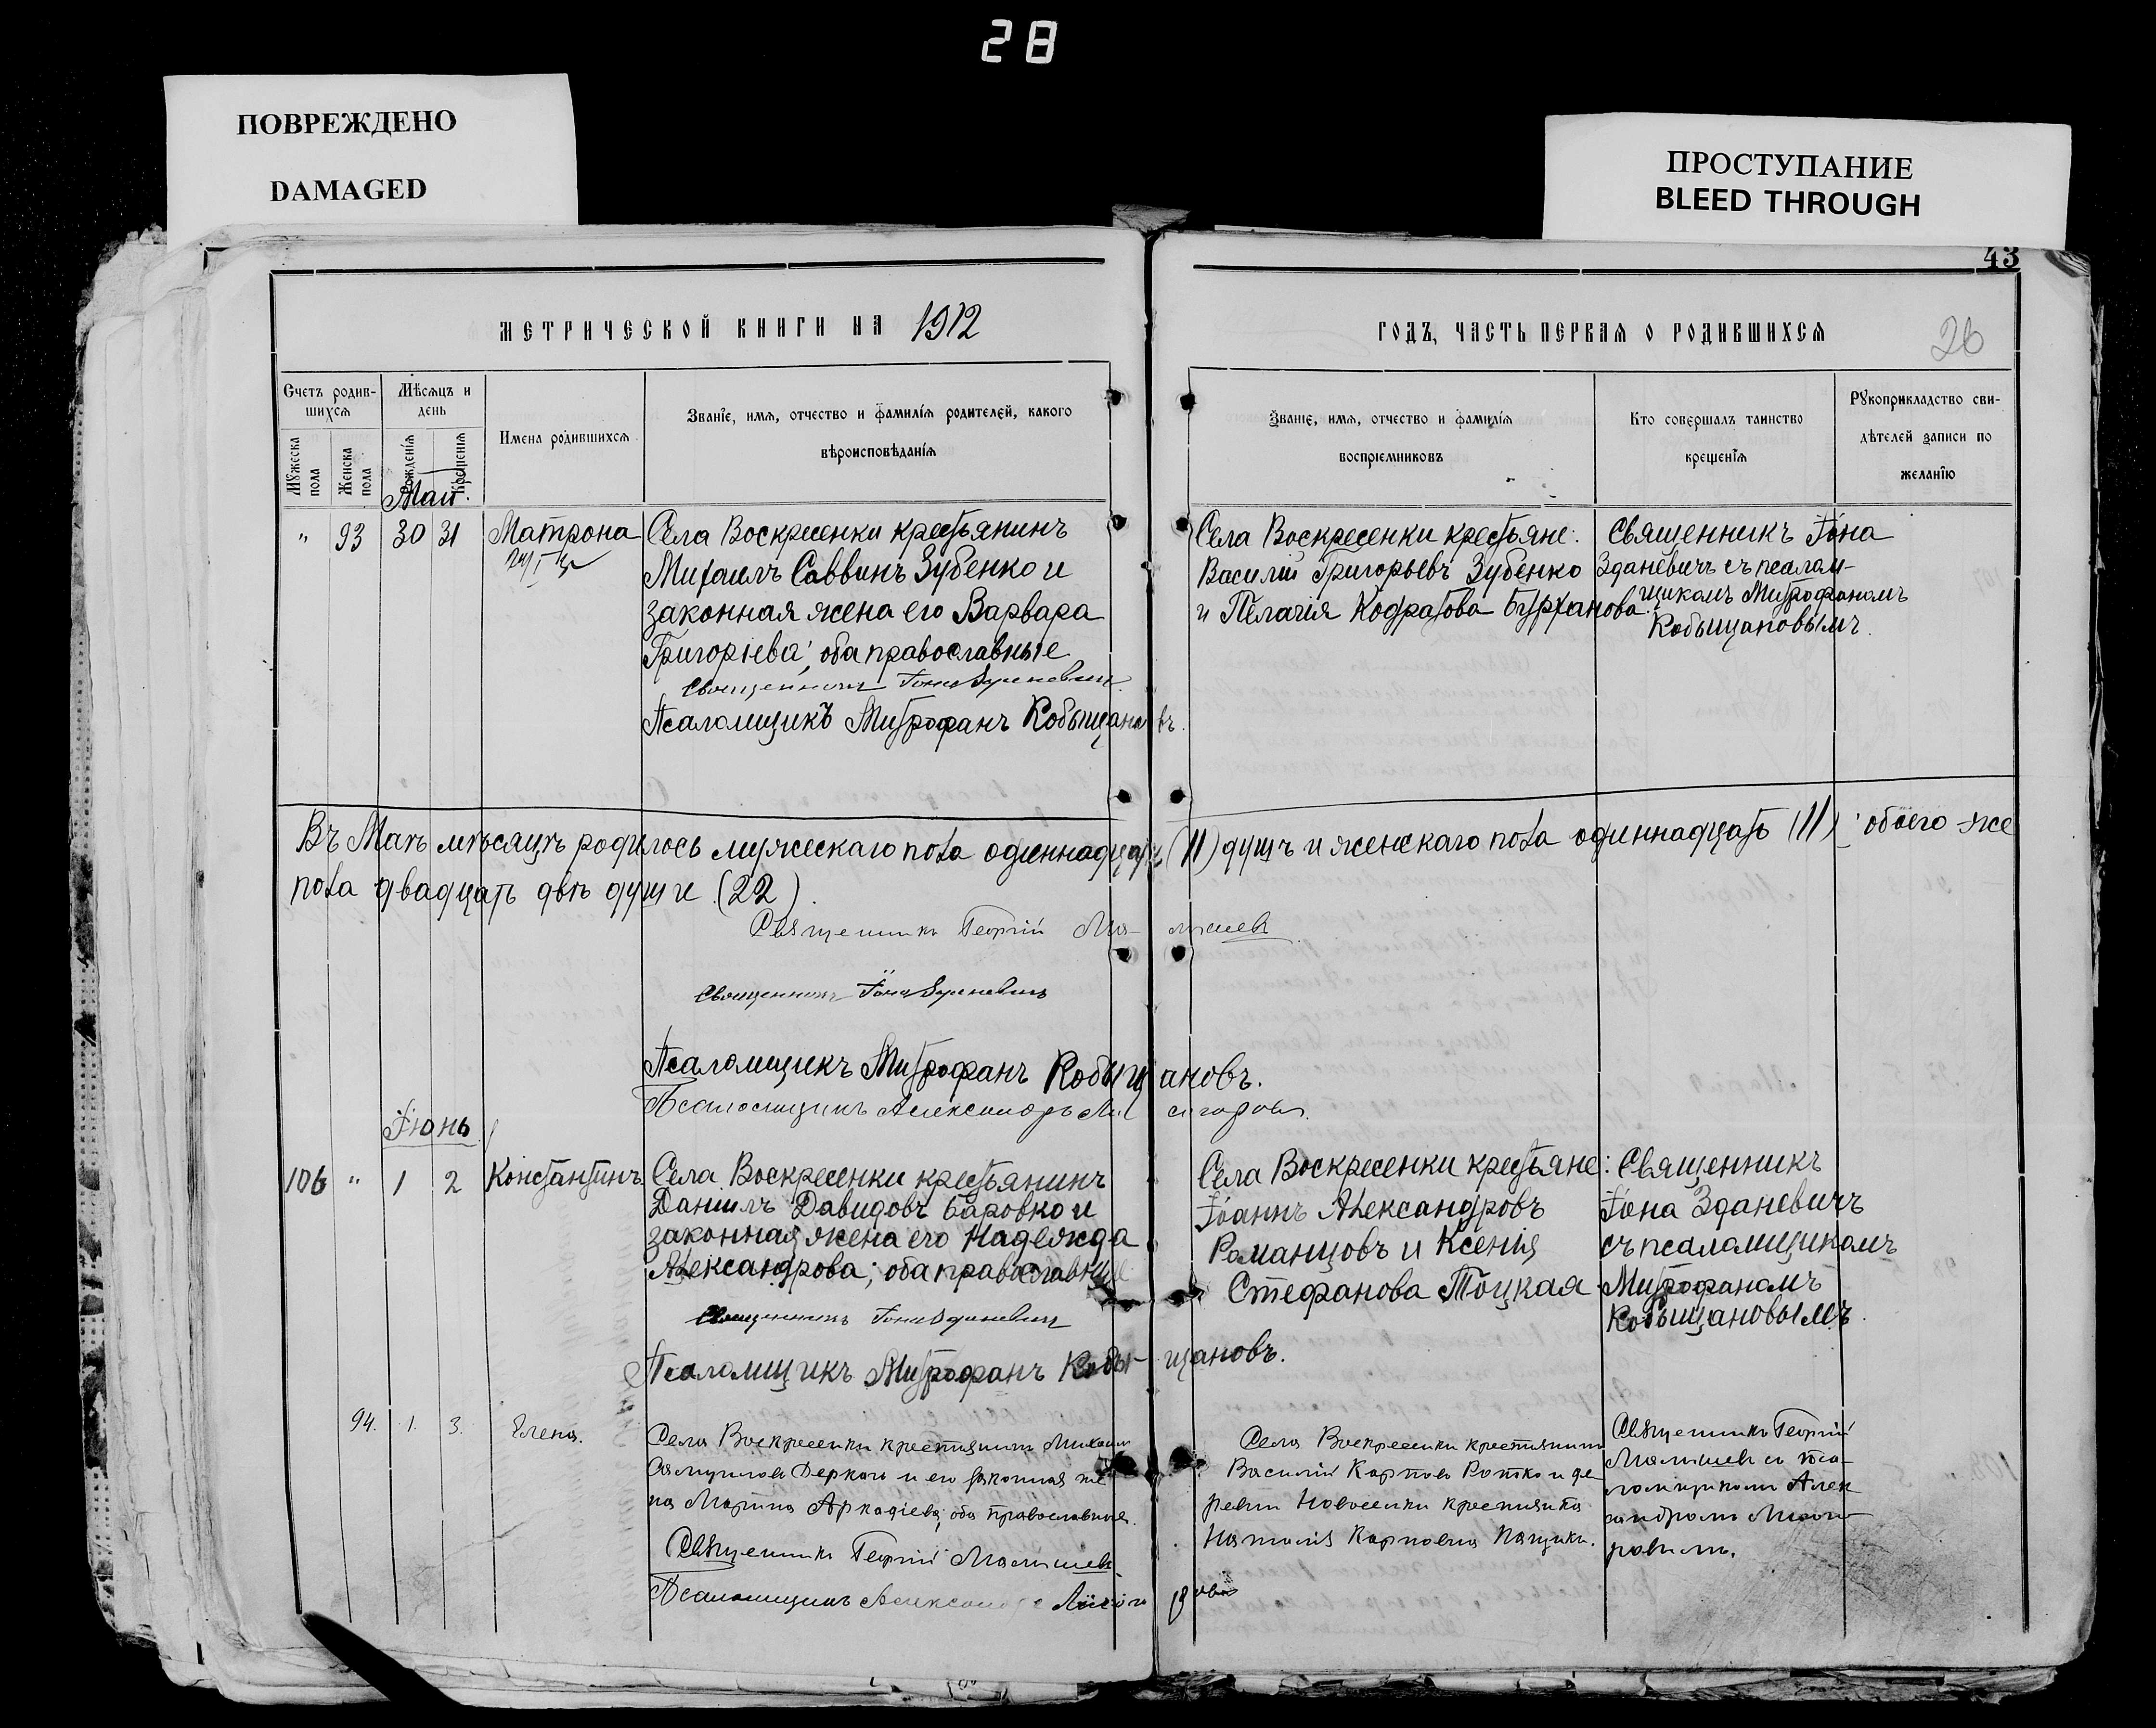 28
ПОВРЕЖДЕНО
DAMAGED
ПРОСТУПАНИЕ
BLEED THROUGH
43
26
МЕТРИЧЕСКОЙ КНИГИ НА 1912
ГОДЪ, ЧАСТЬ ПЕРВАЯ О РОДИВШИХСЯ
Счетъ родив-
шихся
Мужеска пола
Женска пола
Мѣсяцъ и
день
Рожденія
Крещенія
Имена родившихся
Званіе, имя, отчество и фамилія родителей, какого
вѣроисповѣданія
Званіе, имя, отчество и фамилія
воспріемниковъ
Кто совершалъ таинство
крещенія
Рукоприкладство сви-
дѣтелей записи по
желанію
Май.
" 93 30 31 Матрона
Села Воскресенки крестьянинъ
Михаилъ Саввинъ Зубенко и
законная жена его Варвара
Григоріева; оба православные
Священникъ Іона Зданевичъ
Псаломщикъ Митрофанъ Кобыщановъ.
Села Воскресенки крестьяне:
Василій Григорьевъ Зубенко
и Пелагія Кодратова Бурханова.
Священникъ Іона
Зданевичъ съ псалом-
щикомъ Митрофаномъ
Кобыщановымъ.
Въ Маѣ мѣсяцѣ родилось мужескаго пола одиннадцать (11) душъ и женскаго пола одиннадцать (11); обоего же
пола двадцать двѣ души (22).
Священникъ Георгій Малышевъ
Священникъ Іона Зданевичъ
Псаломщикъ Митрофанъ Кобыщановъ.
Псаломщикъ Александръ
Іюнь.
106 " 1 2 Константинъ
Села Воскресенки крестьянинъ
Даніилъ Давидовъ Боровко и
законная жена его Надежда
Александрова; оба православные
Священникъ Іона Зданевичъ
Псаломщикъ Митрофанъ Кобыщановъ.
Села Воскресенки крестьяне:
Іоаннъ Александровъ
Романцовъ и Ксенія
Стефанова Тоцкая
Священникъ
Іона Зданевичъ
съ псаломщикомъ
Митрофаномъ
Кобыщановымъ.
94. 1. 3. Елена.
Села Воскресенки крестьянинъ Михаилъ
Самуиловъ Деркачъ и его законная же-
на Марина Аркадіева, оба православные.
Священникъ Георгій Малышевъ
Псаломщикъ Александръ
Села Воскресенки крестьянинъ
Василій Карповъ Ротко и де-
ревни Новоселки крестьянка
Наталія Карповна Пащикъ.
Священникъ Георгій
Малышевъ съ пса-
ломщикомъ Алек-
сандромъ